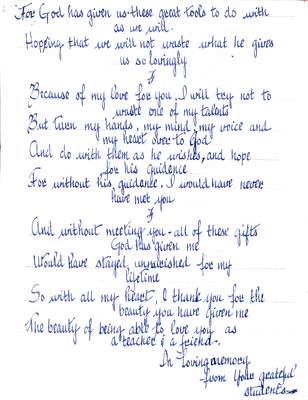 For God has given us these great tools to do with
as we will.
Hopeing that we will not waste what he gives
us so lovingly
Because of my love for you, I will try not to
waste one of my talents
But turn my hands, my mind, my voice and
my heart over to God
And do with them as he wishes, and hope
for his guidence
For without his guidence, I would have never
have met you
And without meeting you - all of these gifts
God has given me
Would have stayed unnurished for my
lifetime
So with all my heart, I thank you for the
beauty you have given me
The beauty of being able to love you as
a teacher & a friend.
In Loving memory
from your grateful
students